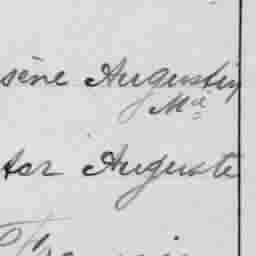 sène Augustin
Ma
tor Auguste